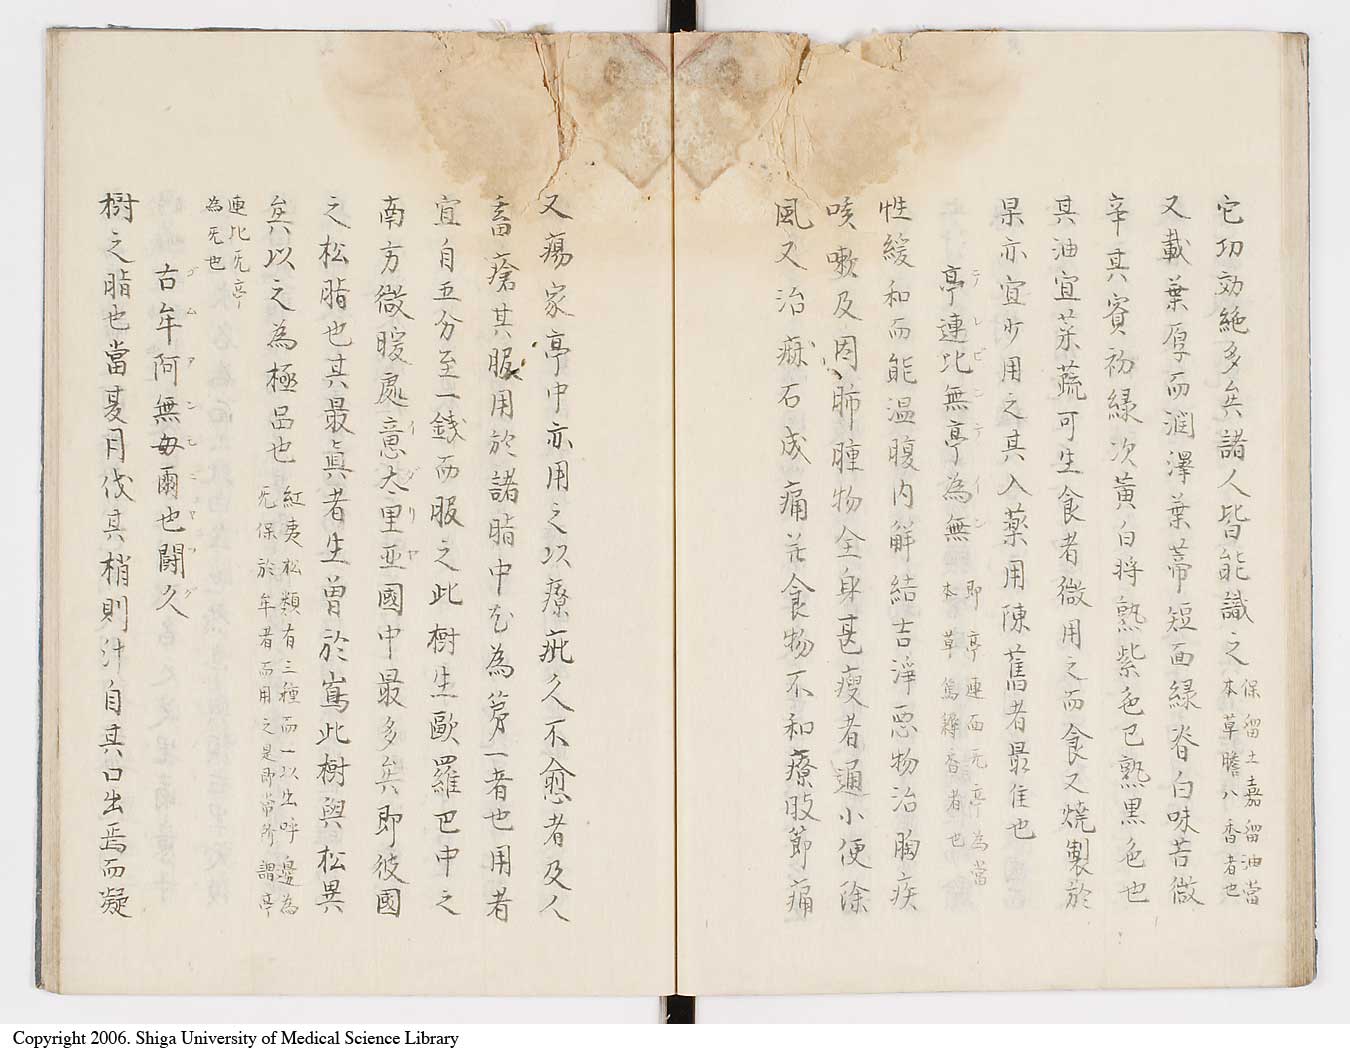 它功効絶多矣諸人皆能識之 保留土嘉留油當
本草膽八香者也
又載葉厚而潤澤葉蔕短面緑脊白味苦微
辛其實初緑次黄白將熟紫色已熟黒色也
其油宜菜蔬可生食者微用之而食又燒製於
果亦宜少用之其入藥用陳舊者最佳也
亭連比無亭為無 即亭連面旡亭為當
テレビンテイン
本草篤耨香者也
性緩和而能温腹内解結吉淨惡物治胸疾
咳嗽及因肺腫物全身甚瘦者通小便除
風又治痳石成痛並食物不和療肢節痛
又瘍家亭中亦用之以療疵久不愈者及人
畜瘡其服用於諸脂中尤為第一者也用者
宜自五分至一錢而服之此樹生歐羅巴中之
南方微暖處意大里亜國中最多矣即彼國
イタリヤ
之松脂也其最眞者生曽於嶌此樹與松異
矣以之為極品也 紅夷松類有三種而一以生呼邊為
旡保於年者而用之是即常所謂亭
連比旡亭
為旡也
古年阿無毋爾也闘久
ゴムアンモニヤツク
樹之脂也當夏月伐其梢則汁自其口出焉而凝
Copyright 2006. Shiga University of Medical Science Library